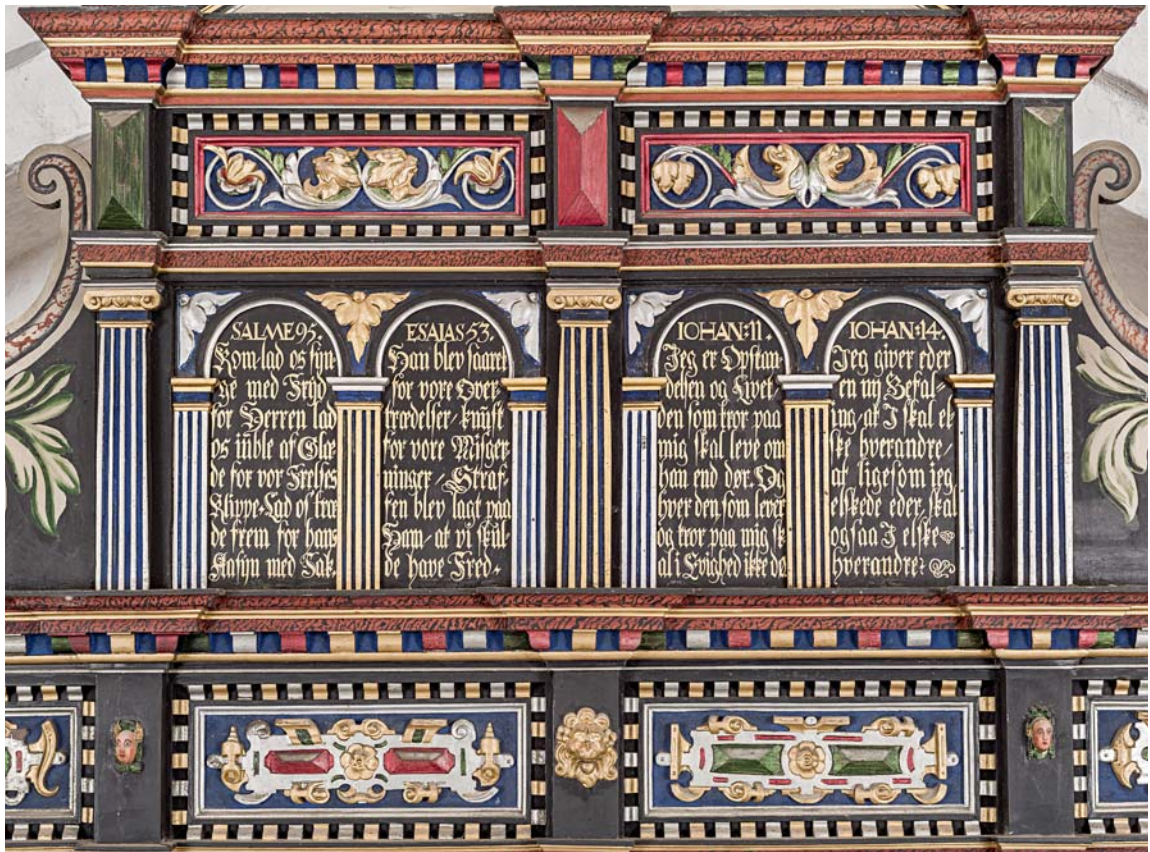 SALME 95.
Kom lad os syn-
ge med Fryd
for Herren lad
os iuble af Glæ
de for vor Frelses
Klippe. Lad os træ
de frem for hans
Aasyn med Tak.
ESAIAS 53.
Han blev saaret
for vore Over
trædelser, knust
for vore Misger
ninger, Straf-
fen blev lagt paa
Ham, at vi skul-
de have Fred.
IOHAN: 11.
Jeg er Opstan
delsen og Livet
den som tror paa
mig skal leve om
han end dør. Og
hver den som lever
og tror paa mig sk
al i Evighed ikke dø
IOHAN: 14.
Jeg giver eder
en ny Befal
ing, at I skal el
ske hverandre,
at ligesom jeg
elskede eder, skal
ogsaa I elske
hverandre: